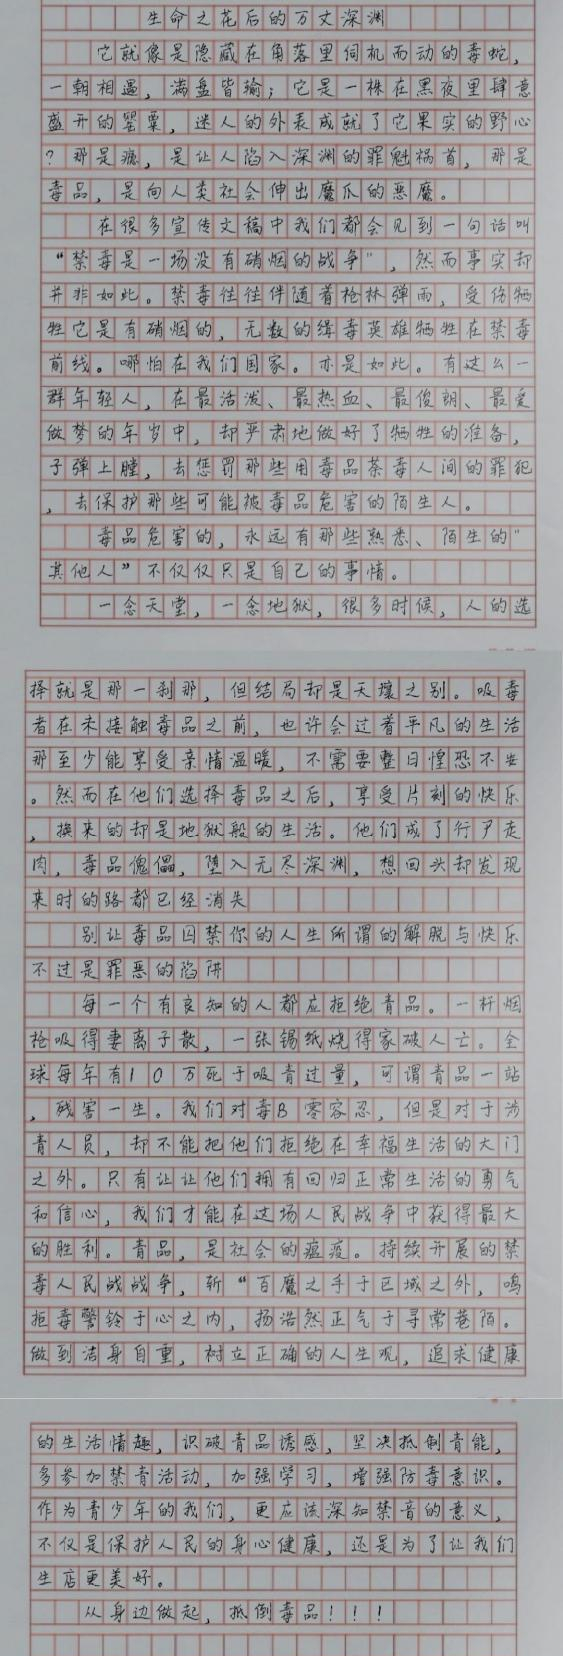 生命之花后的万丈深渊
它就像是隐藏在角落里伺机而动的毒蛇,
一朝相遇,满盘皆输;它是一株在黑夜里肆意
盛开的罂粟,迷人的外表成就了它果实的野心
?那是瘾,是让人陷入深渊的罪魁祸首,那是
毒品,是向人类社会伸出魔爪的恶魔。
在很多宣传文稿中我们都会见到一句话叫
“禁毒是一场没有硝烟的战争”,然而事实却
并非如此。禁毒往往伴随着枪林弹雨,受伤牺
牲它是有硝烟的,无数的缉毒英雄牺牲在禁毒
前线。哪怕在我们国家。亦是如此。有这么一
群年轻人,在最活泼、最热血、最俊朗、最爱
做梦的年岁中,却严肃地做好了牺牲的准备,
子弹上膛,去惩罚那些用毒品荼毒人间的罪犯
,去保护那些可能被毒品危害的陌生人。
毒品危害的,永远有那些熟悉、陌生的“
其他人”不仅仅只是自己的事情。
一念天堂,一念地狱,很多时候,人的选
择就是那一刹那,但结局却是天壤之别。吸毒
者在未接触毒品之前,也许会过着平凡的生活
那至少能享受亲情温暖,不需要整日惶恐不安
。然而在他们选择毒品之后,享受片刻的快乐
,换来的却是地狱般的生活。他们成了行尸走
肉,毒品傀儡,堕入无尽深渊,想回头却发现
来时的路都已经消失
别让毒品囚禁你的人生所谓的解脱与快乐
不过是罪恶的陷阱
每一个有良知的人都应拒绝青品。一杆烟
枪吸得妻离子散,一张锡纸烧得家破人亡。全
球每年有10万死于吸青过量,可谓青品一站
,残害一生。我们对毒B零容忍,但是对于涉
青人员,却不能把他们拒绝在幸福生活的大门
之外。只有让让他们拥有回归正常生活的勇气
和信心,我们才能在这场人民战争中获得最大
的胜利。青品,是社会的瘟疫。持续开展的禁
毒人民战战争,斩“百魔之手于区域之外,鸣
拒毒警铃于心之内,扬浩然正气于寻常巷陌。
做到洁身自重,树立正确的人生观,追求健康
的生活情趣,识破青品诱惑,坚决抵制青能,
多参加禁青活动,加强学习,增强防毒意识。
作为青少年的我们,更应该深知禁音的意义,
不仅是保护人民的身心健康,还是为了让我们
生店更美好。
从身边做起,抵倒毒品!!!